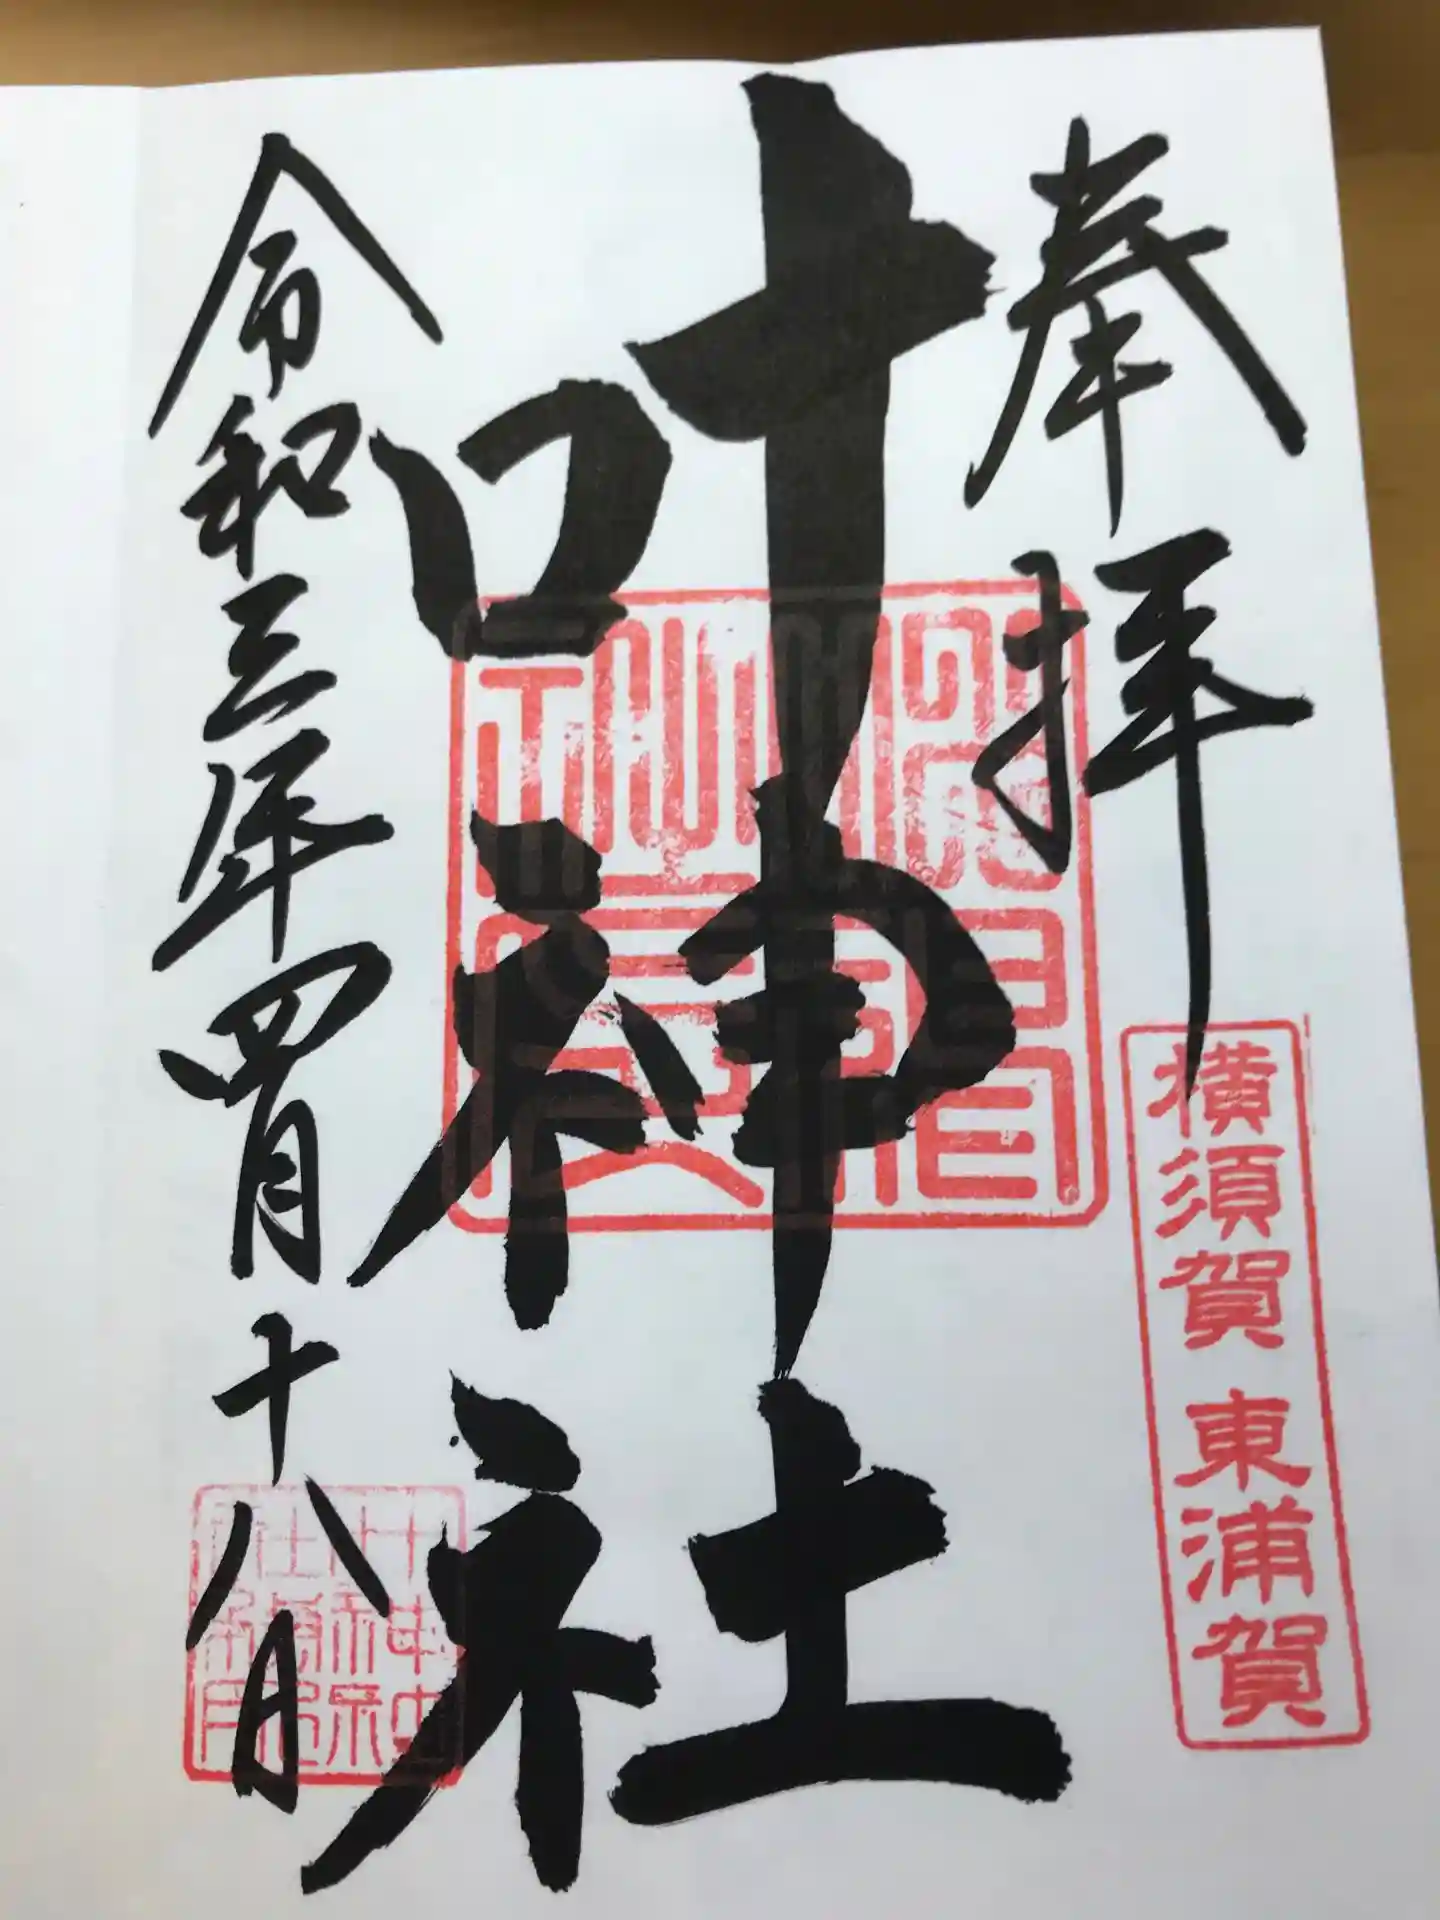 奉拝
横須賀 東浦賀
叶神社
令和三年四月十八日
叶神社